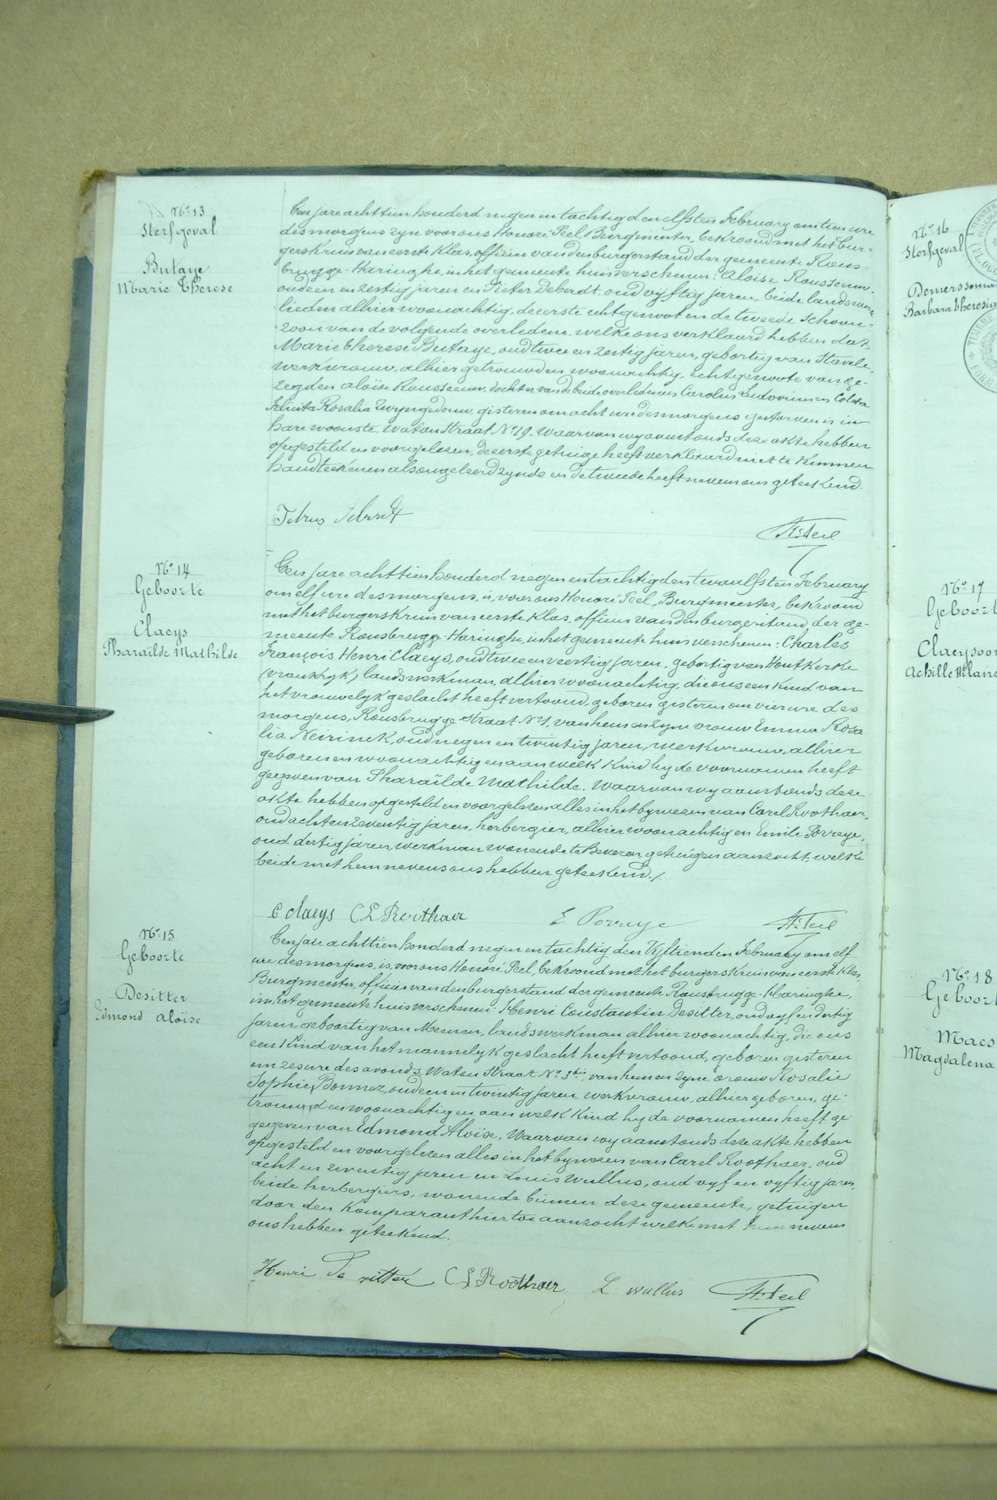 No. 13
Sterfgeval
Butaye
Marie Therese
Een jare achttien honderd negen en tachtig den elfsten February om tien ure
des morgens zyn voor ons Honoré Peel, Burgmeester, bekroond met het bur-
gerskruis van eerste Klas, officier van den burgerstand der gemeente Rous-
brugge-Haringhe, in het gemeente huis verschenen: Aloïse Rousseeuw,
oud een en zestig jaren en Pieter Deberdt, oud vyftig jaren, beide landswerk-
lieden alhier woonachtig, de eerste echtgenoot en de tweede schoon-
zoon van de volgende overledene, welke ons verklaard hebben dat
Marie Therese Butaye, oud twee en zestig jaren, geboortig van Stavele,
werkvrouw, alhier getrouwd en woonachtig, echtgenoote van ge-
zegden Aloïse Rousseeuw, dochter van de beide overledenen Carolus Ludovicus en
Rosalia Zwyngedouw, gisteren om acht ure des morgens gestorven is in
hare woonste Waten Straat No. 19. Waarvan wy aanstonds deze akte hebben
opgesteld en voorgelezen, de eerste getuige heeft verklaard niet te kunnen
handteekenen als ongeleerd zynde en de tweede heeft nevens ons geteekend.
Petrus deberdt
Hré Peel
No. 14
Geboorte
Claeys
Pharaïlde Mathilde
Een jare achttien honderd negen en tachtig den twaalfsten February
om elf ure des morgens, is, voor ons Honoré Peel, Burgmeester, bekroond
met het burgerskruis van eerste Klas, officier van den burgerstand, der ge-
meente Rousbrugge-Haringhe, in het gemeente huis verschenen: Charles
François Henri Claeys, oud twee en veertig jaren, geboortig van Houtkerke
(Vrankryk), landswerkman, alhier woonachtig, die ons een kind van
het vrouwelyk geslacht heeft vertoond, geboren gisteren om vier ure des
morgens, Rousbrugge Straat No. 1, van hem en zyne vrouw Emma Rosa-
lia Neirinck, oud negen en twintig jaren, werkvrouw, alhier
geboren en woonachtig en aan welk kind hy de voornamen heeft
gegeven van Pharaïlde Mathilde. Waarvan wy aanstonds deze
akte hebben opgesteld en voorgelezen alles in het bywezen van Carel Roothaer,
oud acht en zeventig jaren, herbergier, alhier woonachtig en Emile Porreye,
oud dertig jaren, werkman wonende te Beveren, getuigen aanzocht, welke
beide met hem nevens ons hebben geteekend./
C claeys C L Roothaer E Porreye Hré Peel
No. 15
Geboorte
Desitter
Edmond Aloïse
Een jare achttien honderd negen en tachtig den vyftienden February om elf
ure des morgens, is, voor ons Honoré Peel, bekroond met het burgerskruis van eerste Klas,
Burgmeester, officier van den burgerstand der gemeente Rousbrugge-Haringhe,
in het gemeente huis verschenen: Henri Constantin Desitter, oud vyf en dertig
jaren, geboortig van Meenen, landswerkman alhier woonachtig, die ons
een kind van het mannelyk geslacht heeft vertoond, geboren gisteren
om zes ure des avonds, Waten Straat No. 3bis, van hem en zyne vrouw Rosalie
Sophie Bonnez, oud een en twintig jaren, werkvrouw, alhier geboren, ge-
trouwd en woonachtig en aan welk kind hy de voornamen heeft ge-
gegeven van Edmond Aloïse. Waarvan wy aanstonds deze akte hebben
opgesteld en voorgelezen alles in het bywezen van Carel Roothaer, oud
acht en zeventig jaren en Louis Wullus, oud vyf en vyftig jaren,
beide herbergiers, wonende binnen deze gemeente, getuigen
door den Komparant hiertoe aanzocht welke met hem nevens
ons hebben geteekend.
Henri De sitter C L Roothaer L wullus Hré Peel
No. 16
Sterfgeval
No. 17
Geboorte
No. 18
Geboort
Maes
Magdalena